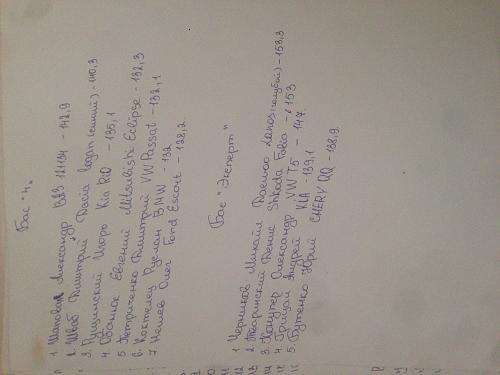 Бас "4"
1 Шаповал Александр ВАЗ 21134 - 142,9
2. Швab Дмитрий Dacia Logan (синий) - 140,3
3. Пушинский Игорь Kia Rio - 135,1
4. Обанюк Евгений Mitsubishi Eclipse - 132,3
5 Петриченко Дмитрий VW Passat - 132,1
6. Коктелец Руслан BMW - 132
7 Нешев Олег Ford Escort - 128,2
Бас "Эксперт"
1 Черников Михаил Daewoo Lanos (голубой) - 153,3
2. Тваринский Денис Shkoda Fabia - 153
3. Александр VW T5 - 147
4. Грицай Андрей KIA - 139,1
5. Бутенко Юрий CHERY QQ - 138,9